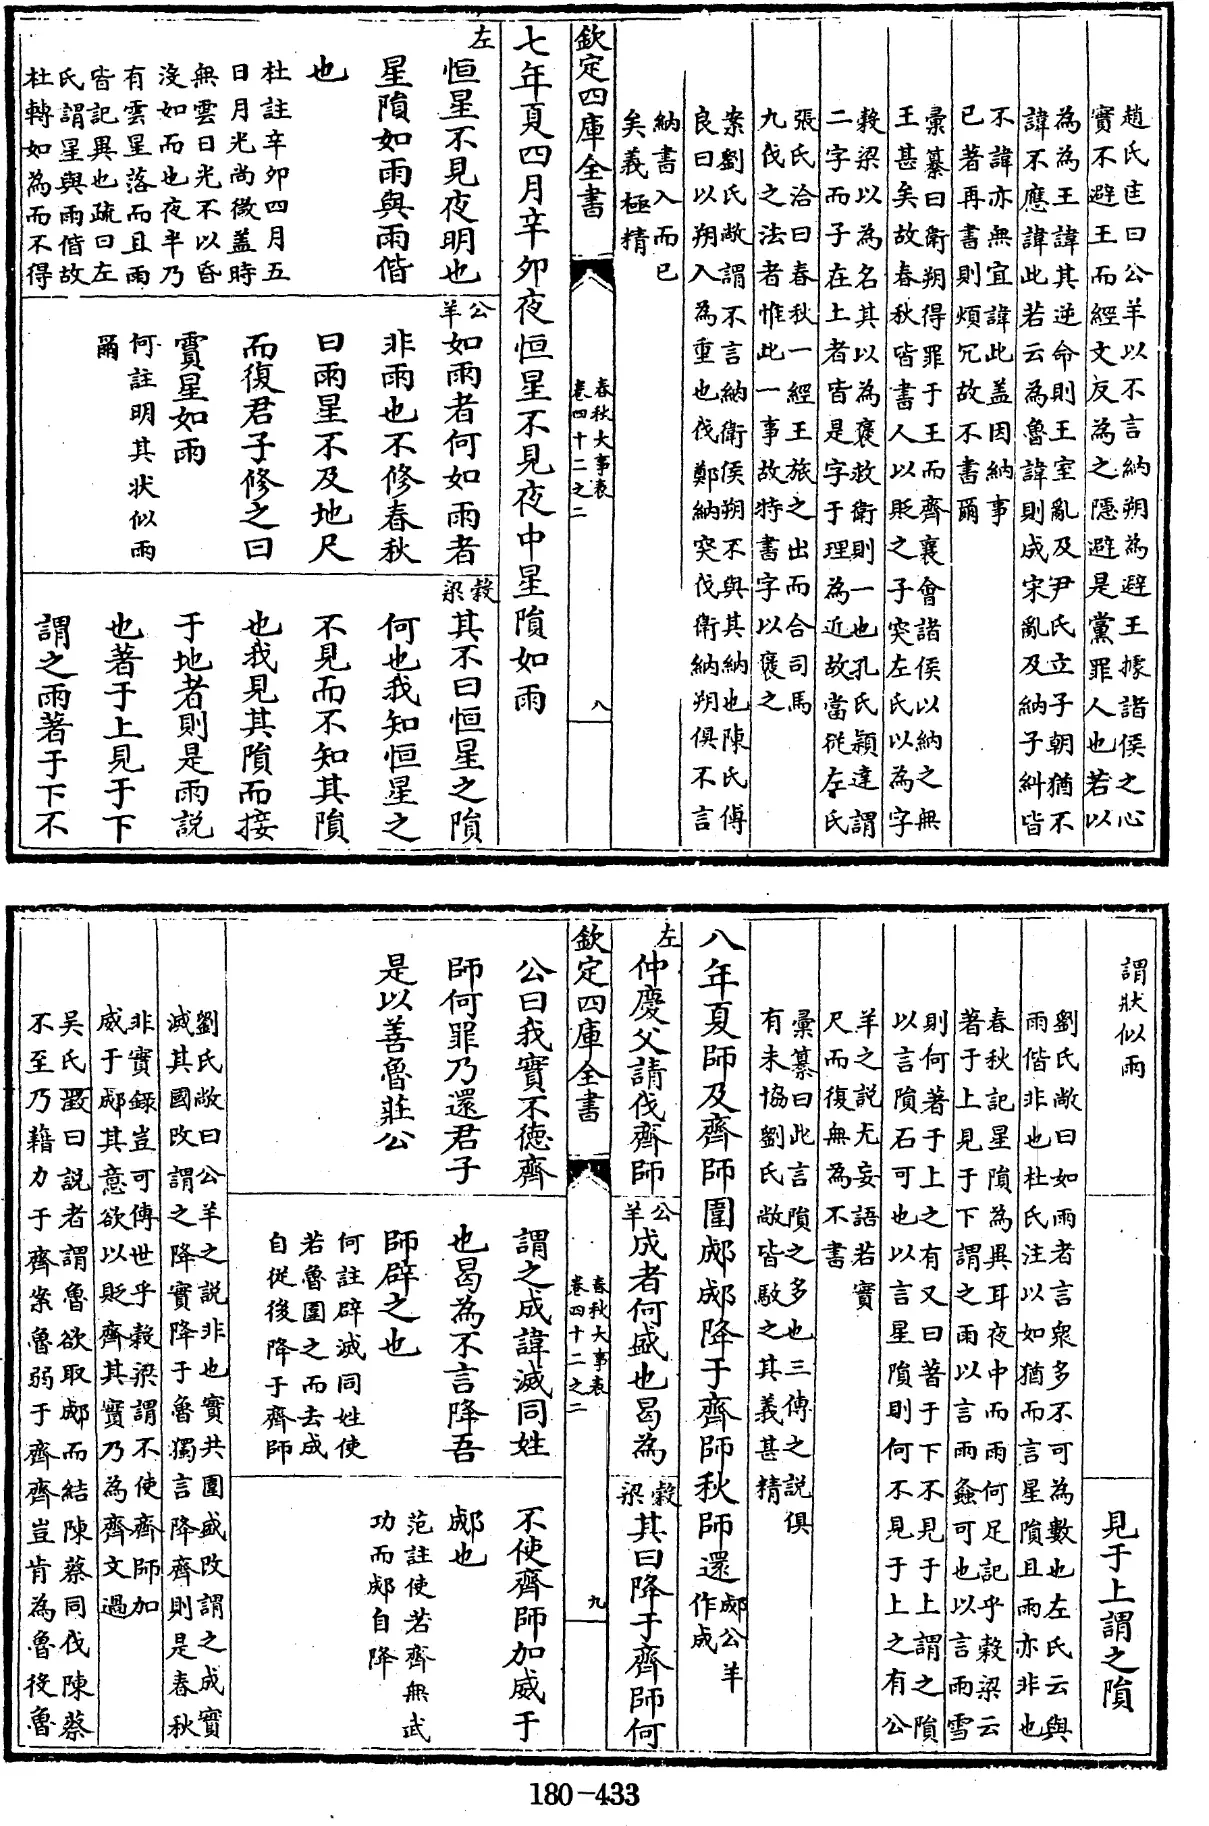 趙氏匡曰公羊以不言納朔為避王據諸侯之心
實不避王而經文反為之隱避是黨罪人也若以
為為王諱其逆命則王室亂及尹氏立子朝猶不
諱不應諱此若云為魯諱則成宋亂及納子糾皆
不諱亦無宜諱此盖因納事
已著再書則煩冗故不書爾
彚纂曰衛朔得罪于王而齊襄會諸侯以納之無
王甚矣故春秋皆書人以貶之子突左氏以為字
穀梁以為名其以為褒救衛則一也孔氏穎達謂
二字而子在上者皆是字于理為近故當從左氏
張氏洽曰春秋一經王旅之出而合司馬
九伐之法者惟此一事故特書字以褒之
案劉氏敞謂不言納衛侯朔不與其納也陳氏傅
良曰以朔入為重也伐鄭納突伐衛納朔俱不言
納書入而已
矣義極精
欽定四庫全書
春秋大事表
卷四十二之二
八
七年夏四月辛夘夜恒星不見夜中星隕如雨
左
恒星不見夜明也
星隕如雨與雨偕
也
杜註辛夘四月五
日月光尚微盖時
無雲日光不以昏
沒如而也夜半乃
有雲星落而且雨
皆記異也疏曰左
氏謂星與雨偕故
杜轉如為而不得
公羊
如雨者何如雨者
非雨也不修春秋
曰雨星不及地尺
而復君子修之曰
霣星如雨
何註明其狀似雨
爾
穀梁
其不曰恒星之隕
何也我知恒星之
不見而不知其隕
也我見其隕而接
于地者則是雨説
也著于上見于下
謂之雨著于下不
謂狀似雨
見于上謂之隕
劉氏敞曰如雨者言衆多不可為數也左氏云與
雨偕非也杜氏注以如猶而言星隕且雨亦非也
春秋記星隕為異耳夜中而雨何足記乎穀梁云
著于上見于下謂之雨以言雨螽可也以言雨雪
則何著于上之有又曰著于下不見于上謂之隕
以言隕石可也以言星隕則何不見于上之有公
羊之説尤妄語若實
尺而復無為不書
彚纂曰此言隕之多也三傳之説俱
有未協劉氏敞皆駁之其義甚精
八年夏師及齊師圍郕郕降于齊師秋師還
郕公羊
作成
左
仲慶父請伐齊師
公羊
成者何盛也曷為
穀梁
其曰降于齊師何
欽定四庫全書
春秋大事表
卷四十二之二
九
公曰我實不德齊
師何罪乃還君子
是以善魯莊公
謂之成諱滅同姓
也曷為不言降吾
師辟之也
何註辟滅同姓使
若魯圍之而去成
自從後降于齊師
不使齊師加威于
郕也
范註使若齊無武
功而郕自降
劉氏敞曰公羊之説非也實共圍盛改謂之成實
滅其國改謂之降實降于魯獨言降齊則是春秋
非實錄豈可傳世乎穀梁謂不使齊師加
威于郕其意欲以貶齊其實乃為齊文過
吳氏澂曰説者謂魯欲取郕而結陳蔡同伐陳蔡
不至乃藉力于齊案魯弱于齊齊豈肯為魯役魯
180-433